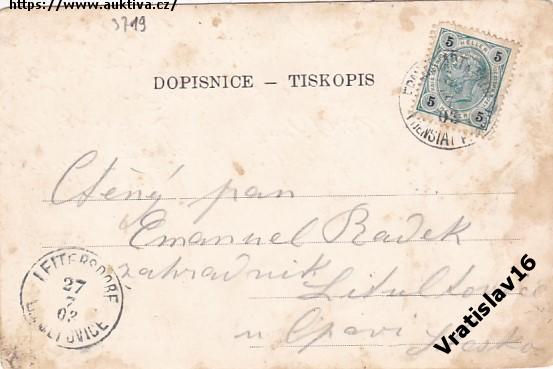 https://www.auktiva.cz/
3719
DOPISNICE – TISKOPIS
5 HELLER 5
5 5
03
Ctěný pan
Emanuel Radek
zahradník
Litultovice
u Opavi
LEITERSDORF
27
7
03
LITULTOVICE
Vratislav16